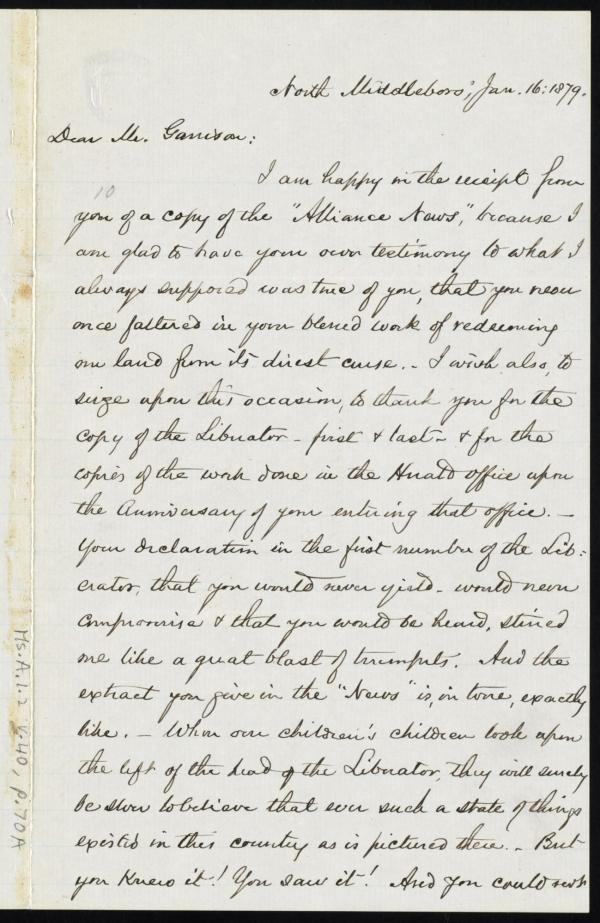 North Middleboro', Jan. 16: 1879.
Dear Mr. Garrison:
I am happy in the receipt from
10
you of a copy of the "Alliance News," because I
am glad to have your own testimony to what I
always supposed was true of you, that you never
once faltered in your blessed work of redeeming
our land from its direst curse. - I wish, also, to
seize upon this occasion, to thank you for the
copy of the Liberator - first & last - & for the
copies of the work done in the Herald office upon
the Anniversary of your entering that office. -
Your declaration in the first number of the Lib:
erator, that you would never yield - would never
compromise & that you would be heard, stirred
me like a great blast of trumpets. And the
extract you give in the "News" is, in tone, exactly
like. - When our children's children look upon
the left of the head of the Liberator, they will surely
be slow to believe that ever such a state of things
existed in this country as is pictured there. - But
you knew it! You saw it! And you could not
Ms.A.1.2 v.40, p.70A